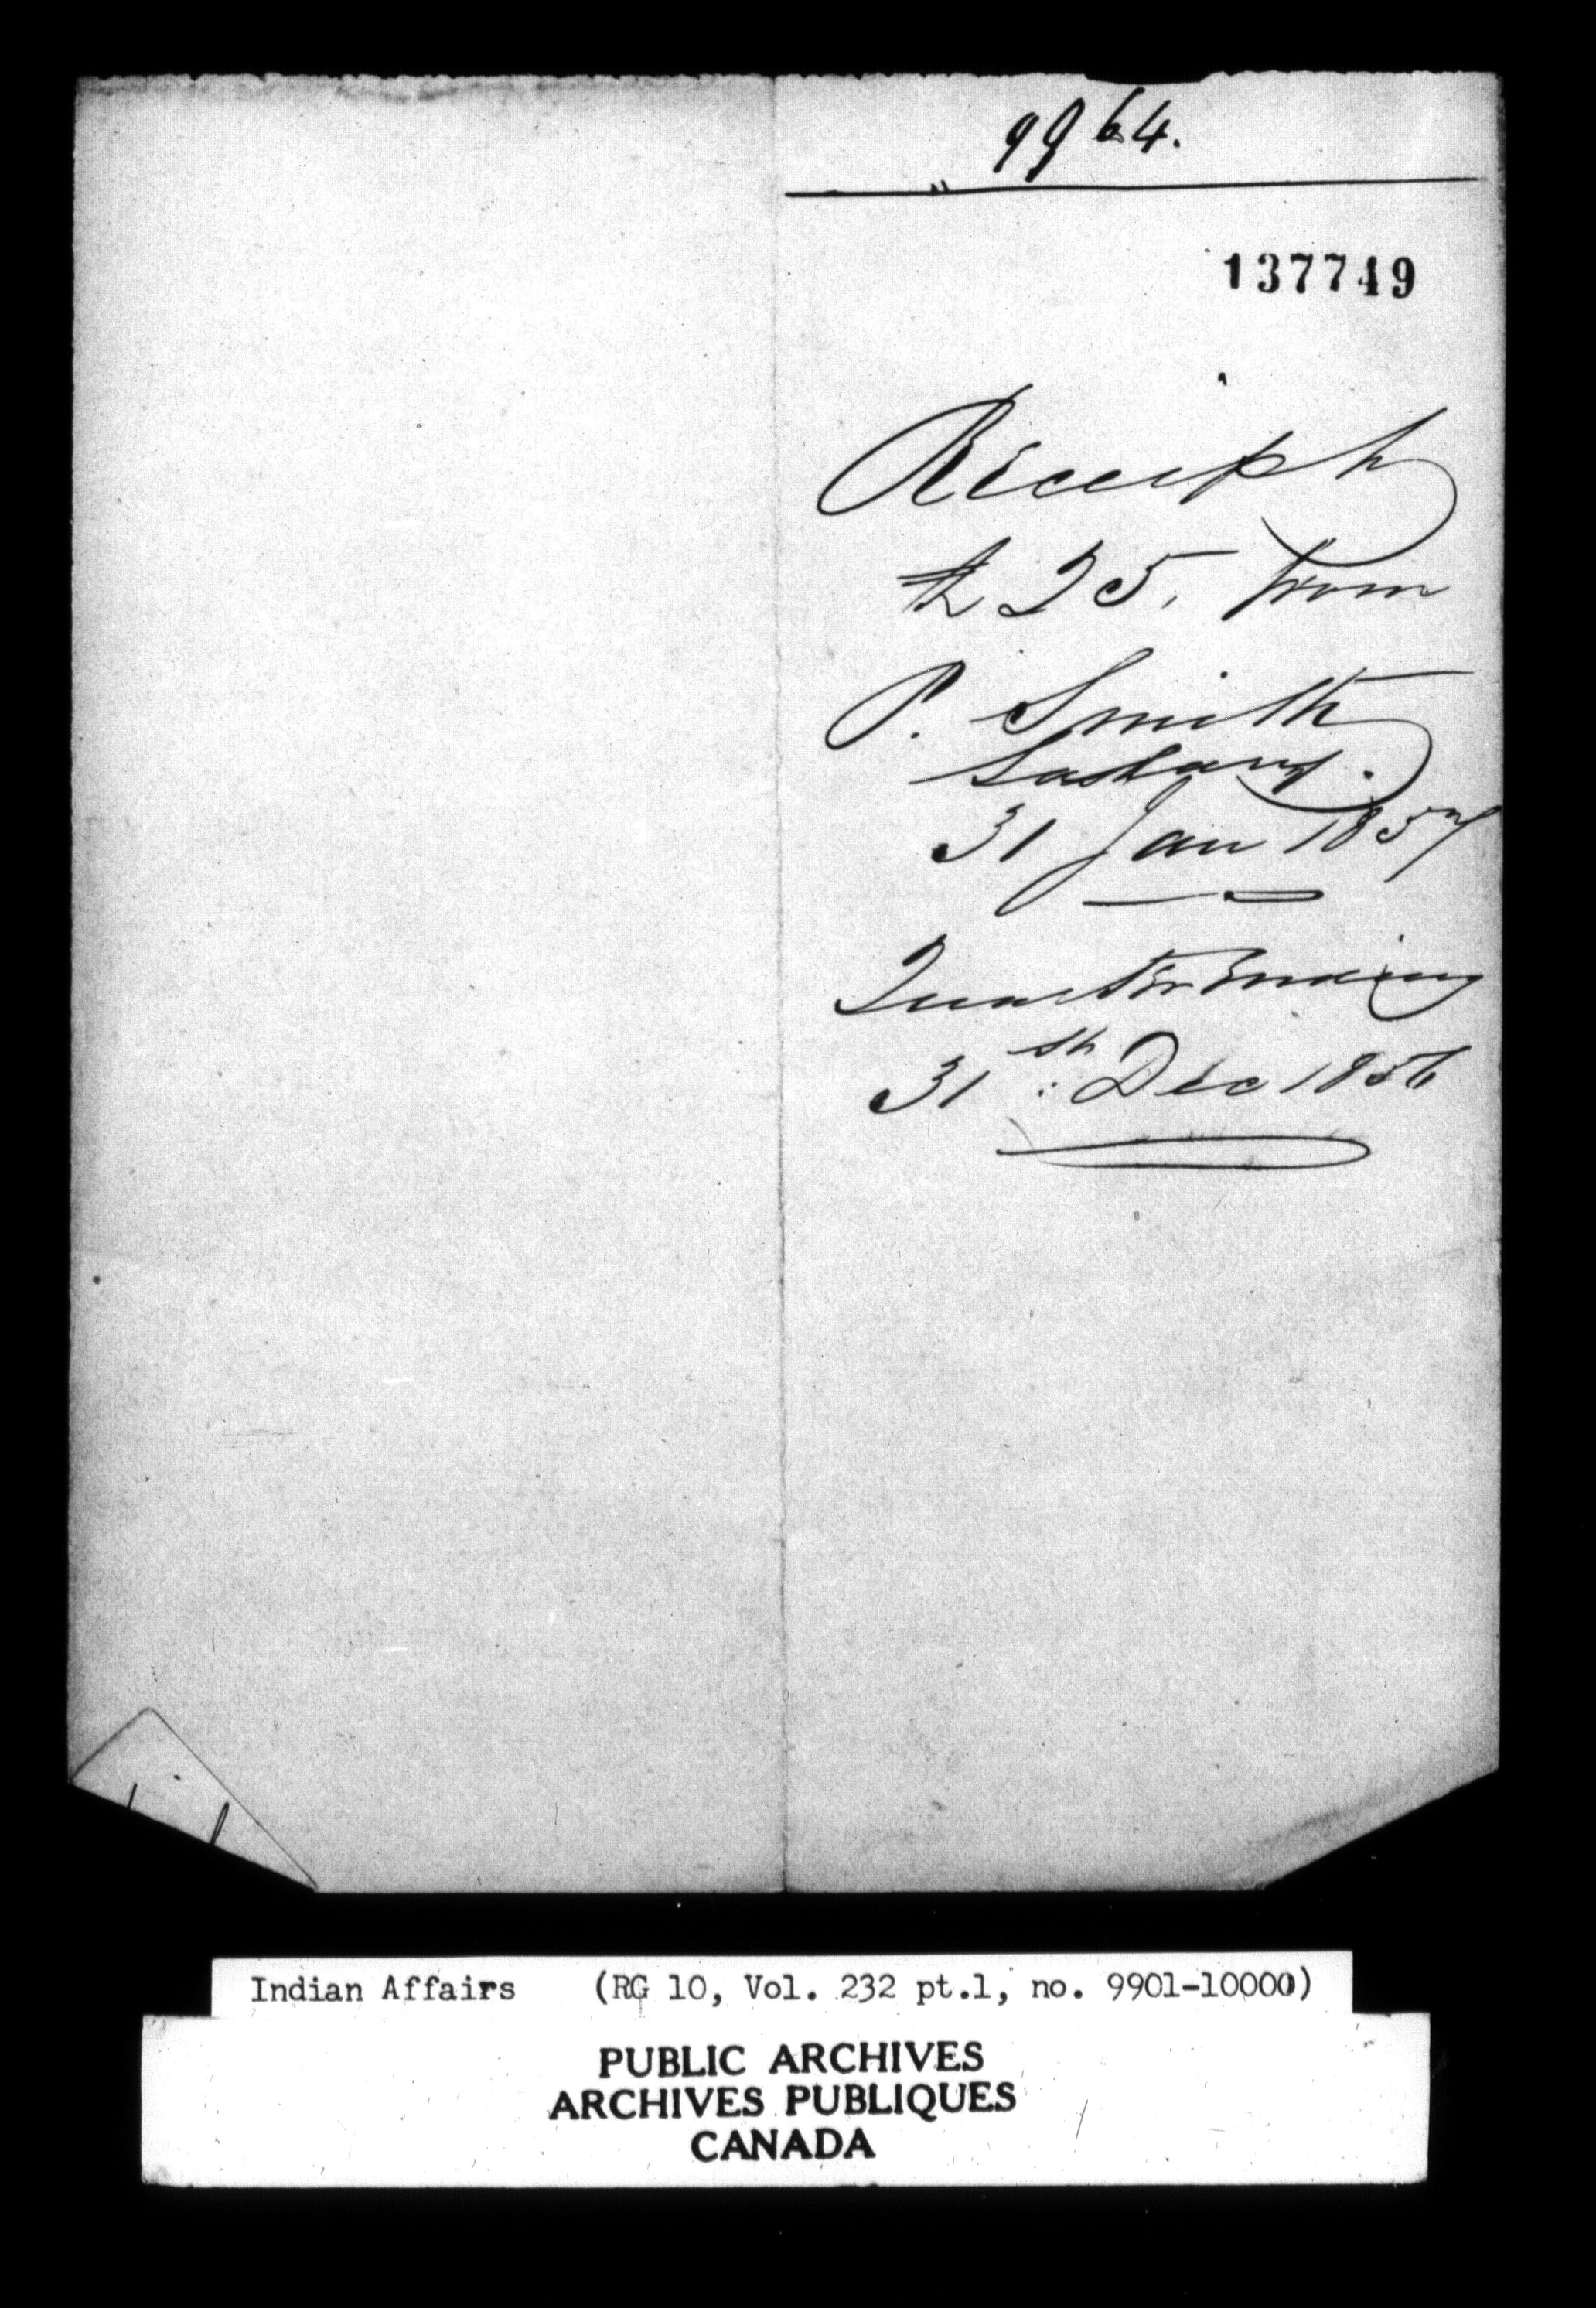 9964.
137749
Receipt
£25, from
P. Smith
31 Jan 1857
Quarter Ending
31st: Dec 1856
Indian Affairs (RG 10, Vol. 232 pt.1, no. 9901-10000)
PUBLIC ARCHIVES
ARCHIVES PUBLIQUES
CANADA